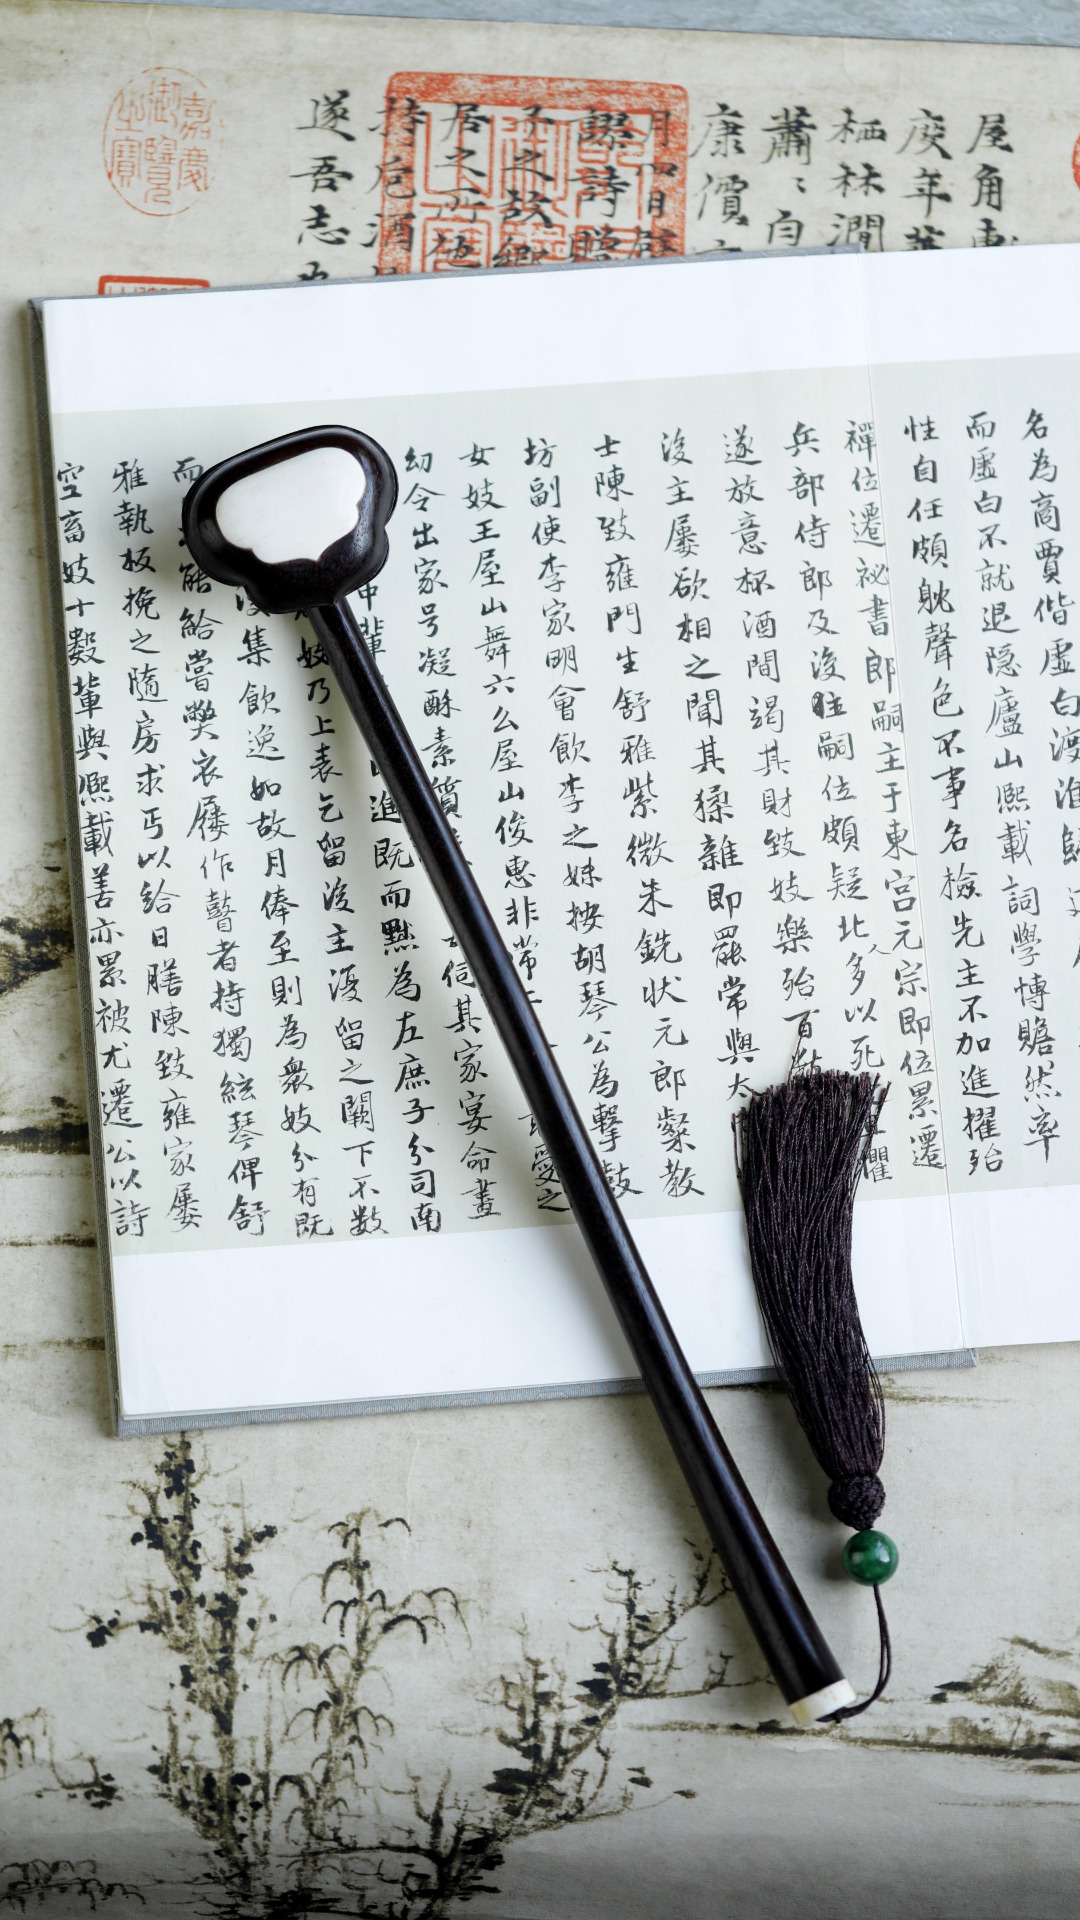 屋角
庾年華
栖林澗
蕭〻自
康價
月四日
謌詩贈
子之故鄉
居之所
持卮酒
遂吾志
嘉慶御覽之寶
名為商賈偕虛白渡淮歸
而虛白不就退隐廬山熙載詞學博贍然率
性自任頗躭聲色不事名檢先主不加進擢殆
禪位遷祕書郎嗣主于東宮元宗即位累遷
兵部侍郎及後主嗣位頗疑北人多以死懼
遂放意杯酒間竭其財致妓樂殆百數
後主屢欲相之聞其猱雜即罷常與太
士陳致雍門生舒雅紫微朱銑狀元郎粲教
坊副使李家明會飲李之妹按胡琴公為擊鼓
女妓王屋山舞六么屋山俊惠非常二最愛之
幼令出家号凝酥素質伺其家宴命畫
中輩進既而黜為左庶子分司南
妓乃上表乞留後主復留之闕下不数
集飲逸如故月俸至則為衆妓分有既
而能給嘗獘衣屨作瞽者持獨絃琴俾舒
雅執板挽之隨房求丐以給日膳陳致雍家屢
空畜妓十數輩與熙載善亦累被尤遷公以詩